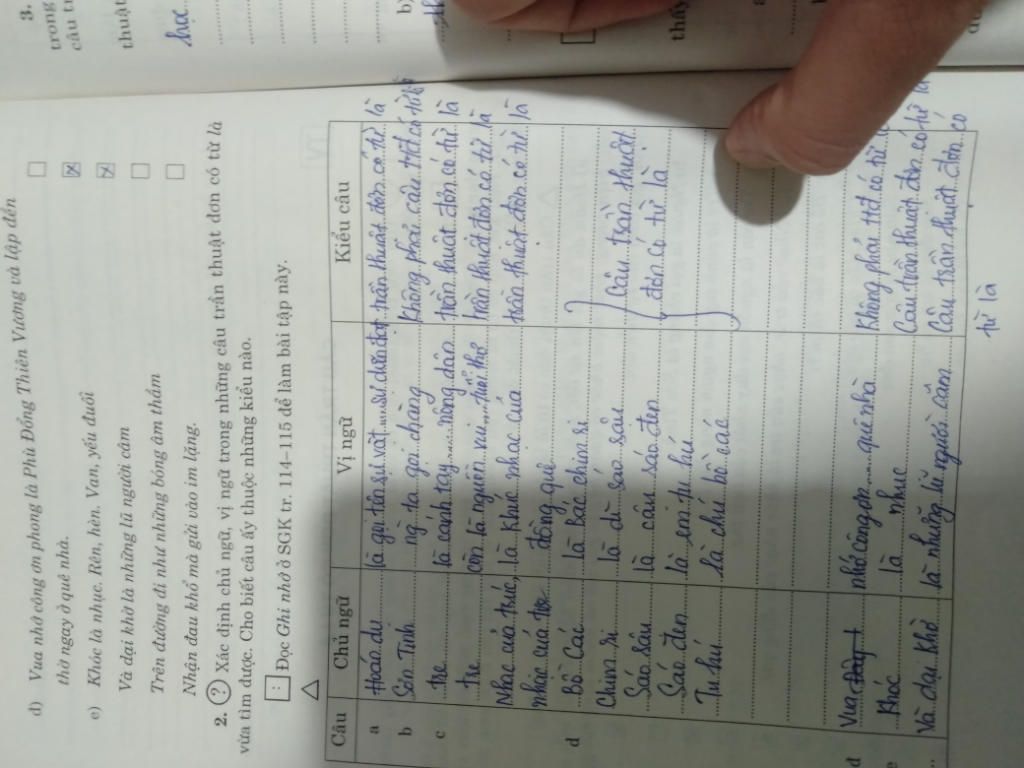 d) Vua nhớ công ơn phong là Phù Đổng Thiên Vương và lập đền
thờ ngay ở quê nhà.
e) Khóc là nhục. Rên, hèn. Van, yếu đuối
Và dại khờ là những lũ người câm
Trên đường đi như những bóng âm thầm
Nhận đau khổ mà gửi vào im lặng.
2. ? Xác định chủ ngữ, vị ngữ trong những câu trần thuật đơn có từ là
vừa tìm được. Cho biết câu ấy thuộc những kiểu nào.
Đọc Ghi nhớ ở SGK tr. 114–115 để làm bài tập này.
Câu Chủ ngữ Vị ngữ Kiểu câu
a Hoán dụ là gọi tên sự vật ... sự diễn đạt trần thuật đơn có từ là
b Sơn Tinh ng ta gọi chàng không phải câu trtđ có từ là
c tre là cánh tay ... nông dân trần thuật đơn có từ là
tre còn là nguồn vui ... tuổi thơ trần thuật đơn có từ là
Nhạc của trúc, là khúc nhạc của trần thuật đơn có từ là
nhạc của tre đồng quê
d Bồ Các là bác chim ri
Chim ri là dì sáo sậu Câu trần thuật
Sáo sậu là cậu sáo đen đơn có từ là
Sáo đen là em tu hú
Tu hú là chú bồ các
d Vua nhớ công ơn ... quê nhà không phải ttđ có từ
Khóc là nhục Câu trần thuật đơn có từ là
Và dại khờ là những lũ người câm Câu trần thuật đơn có
từ là
3.
trong
câu tr
thuật
học
b)
thấy